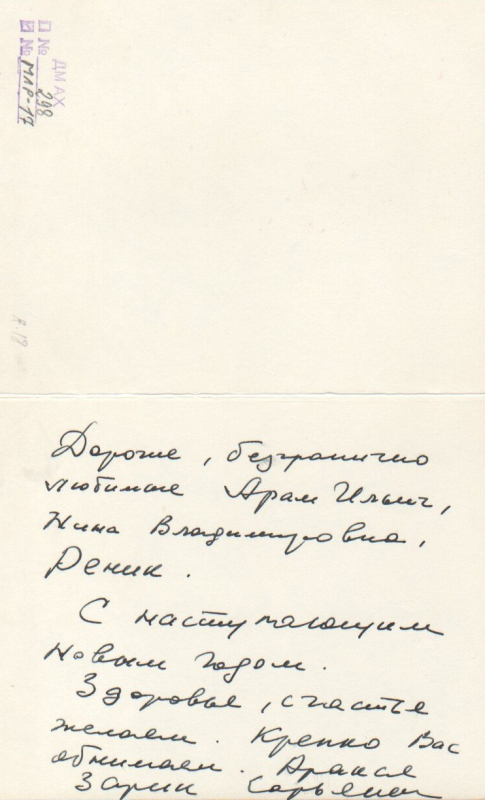 ДМАХ
№ 298
№ МЛР-17
Дорогие, безгранично
любимые Арам Ильич,
Нина Владимировна,
Реник.
С наступающим
Новым годом.
Здоровье, счастье
желаем. Крепко Вас
обнимаем. Аракся
Зарик Сарьян